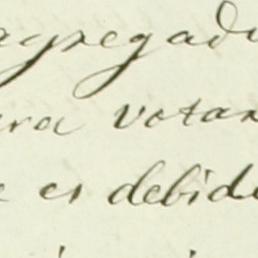 agregado
ara votar
e es debido